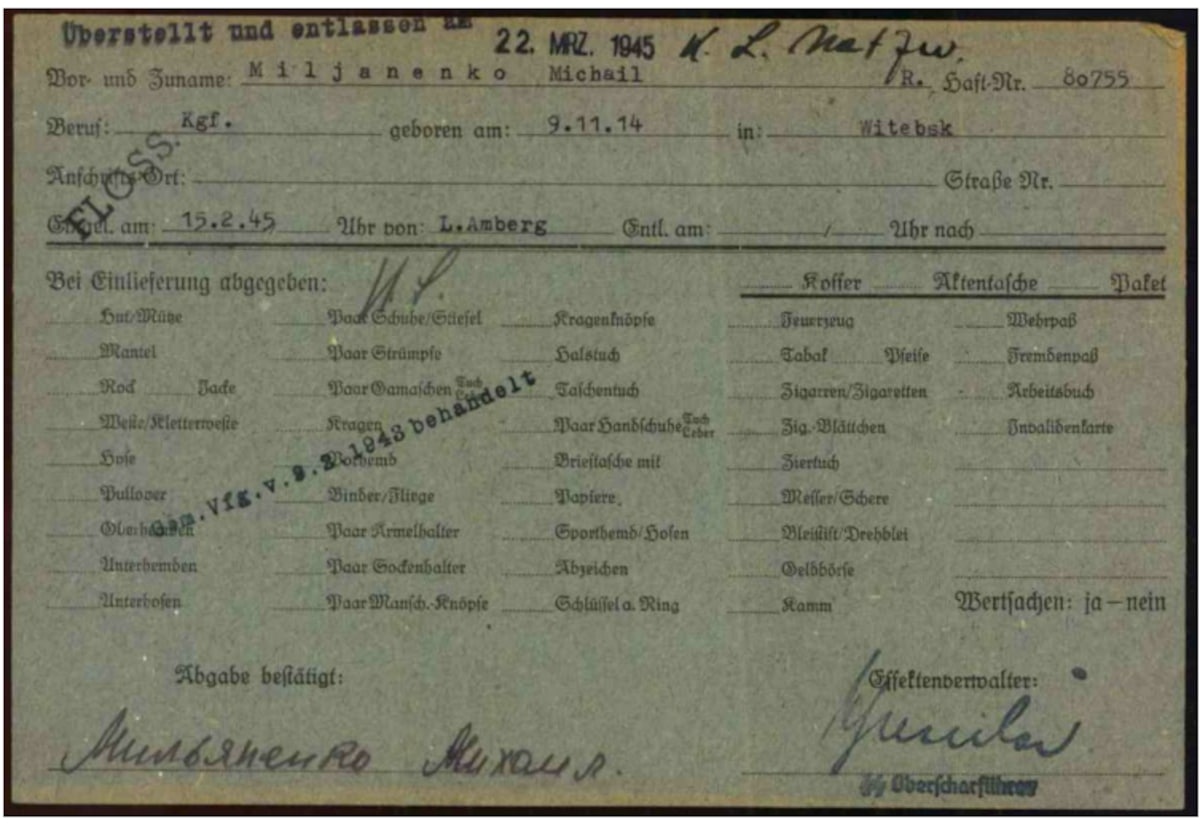 Überstellt und entlassen am 22. MRZ. 1945 K. L. Natzw.
Vor- und Zuname: Miljanenko Michail R. Haft-Nr. 80755
Beruf: Kgf. geboren am: 9.11.14 in: Witebsk
Anschrifts-Ort: Straße Nr.
FLOSS.
Eingel. am: 15.2.45 Uhr von: L.Amberg Entl. am: / Uhr nach
Bei Einlieferung abgegeben: Koffer Aktentasche Paket
Hut/Mütze Paar Schuhe/Stiefel Kragenknöpfe Feuerzeug Wehrpaß
Mantel Paar Strümpfe Halstuch Tabak Pfeife Fremdenpaß
Rock Jacke Paar Gamaschen Tuch Leder Taschentuch Zigarren/Zigaretten Arbeitsbuch
Weste/Kletterweste Kragen Paar Handschuhe Tuch Leder Zig.-Blättchen Invalidenkarte
Hose Vorhemd Brieftasche mit Ziertuch
Pullover Binder/Fliege Papiere Messer/Schere
Oberhemden Paar Ärmelhalter Sporthemd/Hosen Bleistift/Drehblei
Unterhemden Paar Sockenhalter Abzeichen Geldbörse
Unterhosen Paar Mansch.-Knöpfe Schlüssel a. Ring Kamm Wertsachen: ja – nein
Gem. Vfg. v. 9.2.1943 behandelt
Abgabe bestätigt: Effektenverwalter:
Мильяненко Михаил.
SS Oberscharführer